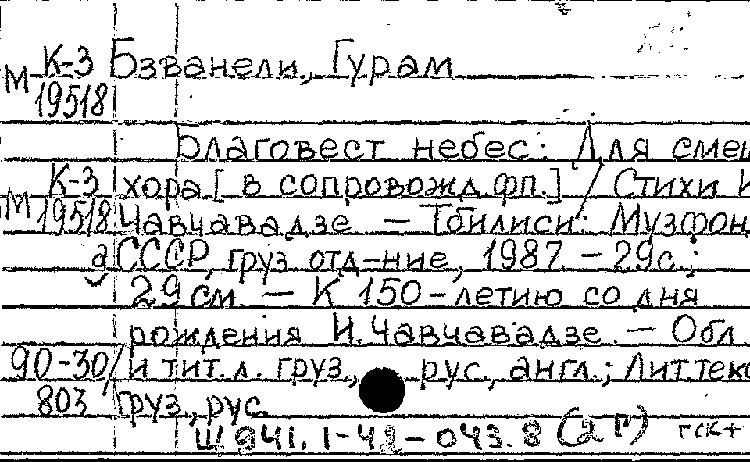 М К-3 Бзванели, Гурам
19518
Благовест небес: Для смеш
М К-3 хора [ в сопровожд. фп.] / Стихи И
19518 Чавчавадзе. — Тбилиси: Музфонд
а СССР, груз. отд-ние, 1987. — 29с.;
29 см. — К 150-летию со дня
рождения И. Чавчавадзе. — Обл.
90-30/ и тит. л. груз., рус., англ.; Лит. текс
803 груз., рус.
Щ941.1-42-043.8 (2Г) гск+